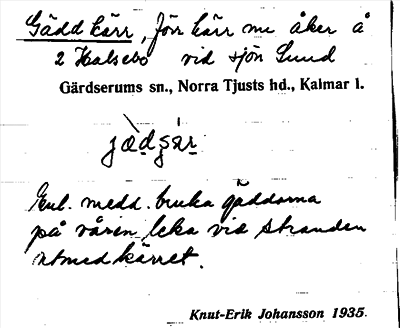 Gäddkärr, förr kärr nu åker å
2 Halsebo vid sjön Sund
Gärdserums sn., Norra Tjusts hd., Kalmar l.
Enl. medd. bruka gäddorna
på våren leka vid stranden
utmed kärret.
Knut-Erik Johansson 1935.